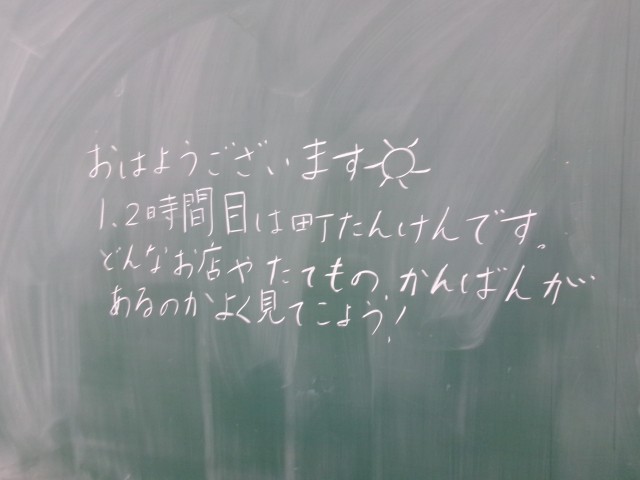 おはようございます
1.2時間目は町たんけんです。
どんなお店やたてもの、かんばんが
あるのかよく見てこよう!